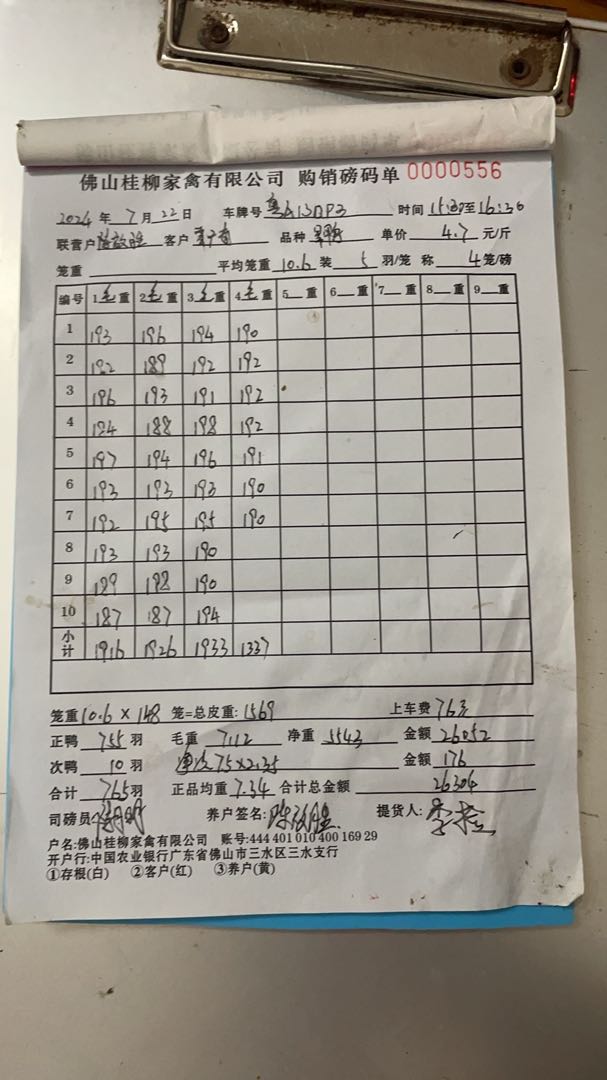 佛山桂柳家禽有限公司 购销磅码单 0000556
2024 年 7 月 22 日 车牌号 时间 至 16:30
联营户 客户 品种 单价 4.7 元/斤
笼重 平均笼重 10.6 装 5 羽/笼 称 4 笼/磅
编号 1毛重 2毛重 3毛重 4毛重 5重 6重 7重 8重 9重
1 193 196 194 190
2 192 189 192 192
3 196 193 191 192
4 194 188 198 192
5 197 194 196 191
6 193 193 193 190
7 192 195 195 190
8 193 193 190
9 189 198 190
10 187 187 194
小计 1916 1926 1933 1337
笼重 10.6 × 148 笼=总皮重: 1569 上车费 763
正鸭 755 羽 毛重 7112 净重 5543 金额 26052
次鸭 10 羽 75×2.35 金额 176
合计 765 羽 正品均重 7.34 合计总金额 26304
司磅员 养户签名: 提货人:
户名:佛山桂柳家禽有限公司 账号:444 401 010 400 169 29
开户行:中国农业银行广东省佛山市三水区三水支行
①存根(白) ②客户(红) ③养户(黄)